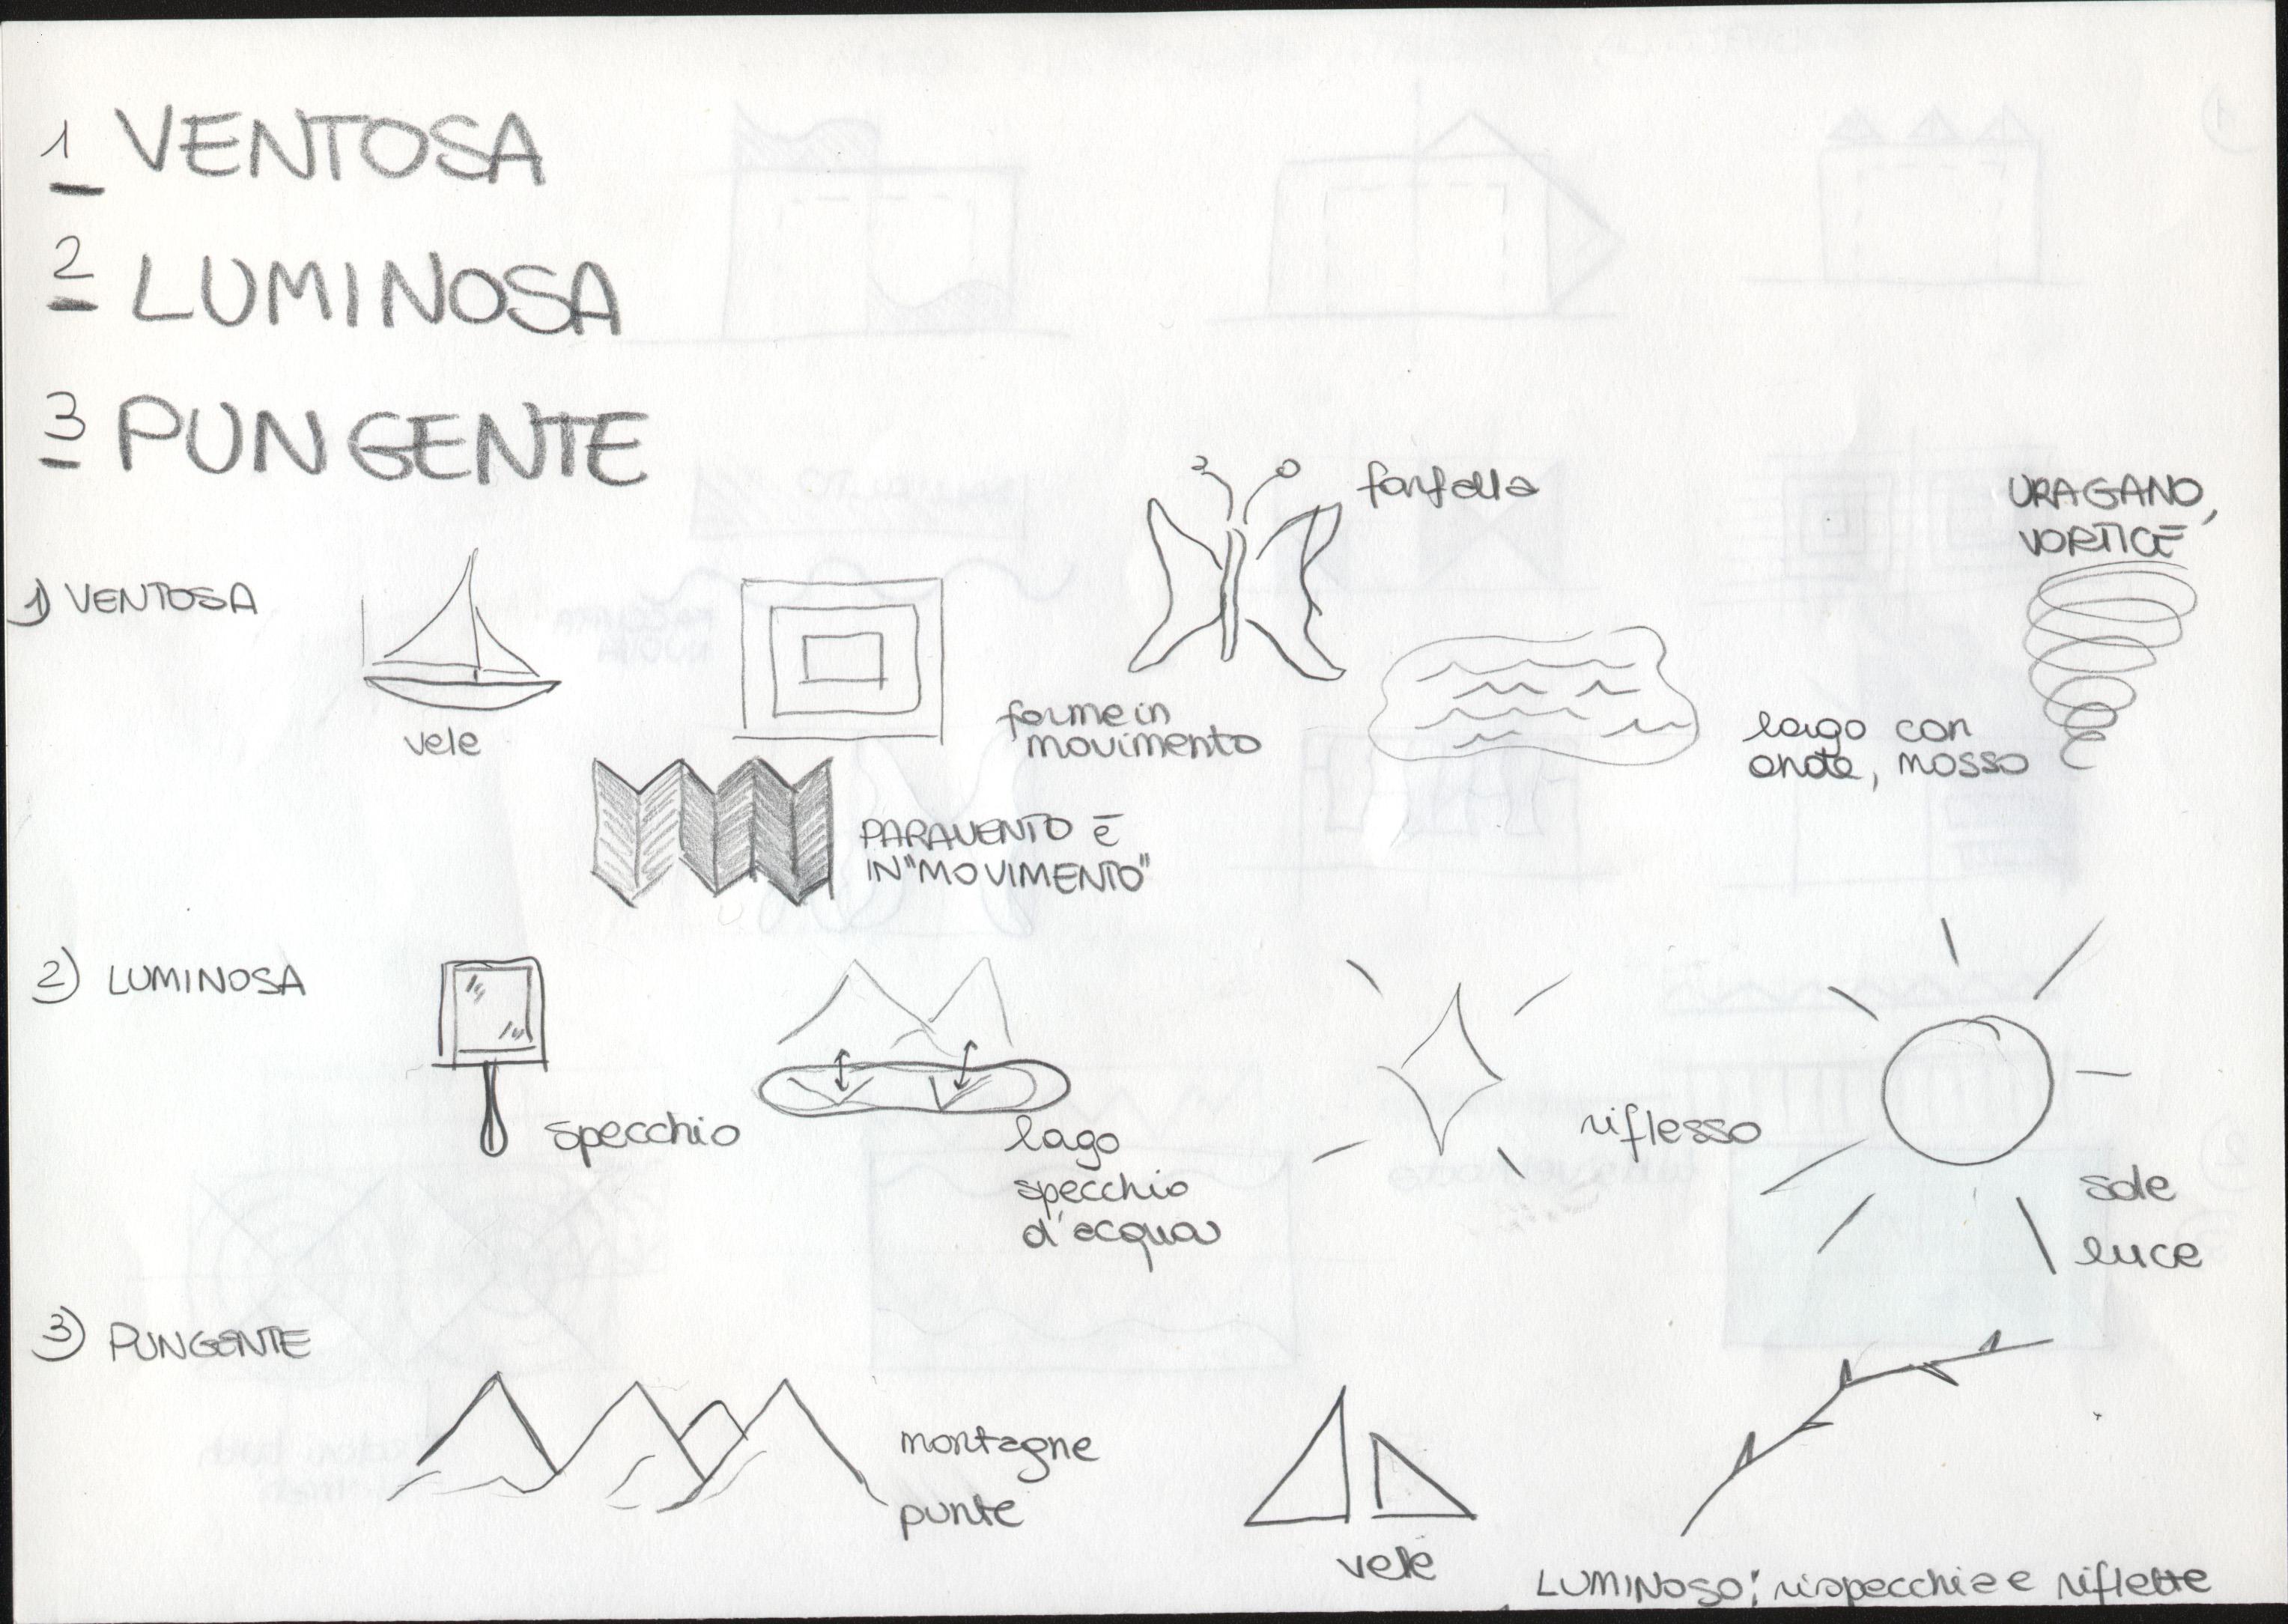 1 VENTOSA
2 LUMINOSA
3 PUNGENTE
farfalla
URAGANO,
VORTICE
1) VENTOSA
vele
forme in
movimento
lago con
onde, mosso
PARAVENTO È
IN "MOVIMENTO"
2) LUMINOSA
specchio
lago
specchio
d'acqua
riflesso
sole
luce
3) PUNGENTE
montagne
punte
vele
LUMINOSO: rispecchia e riflette